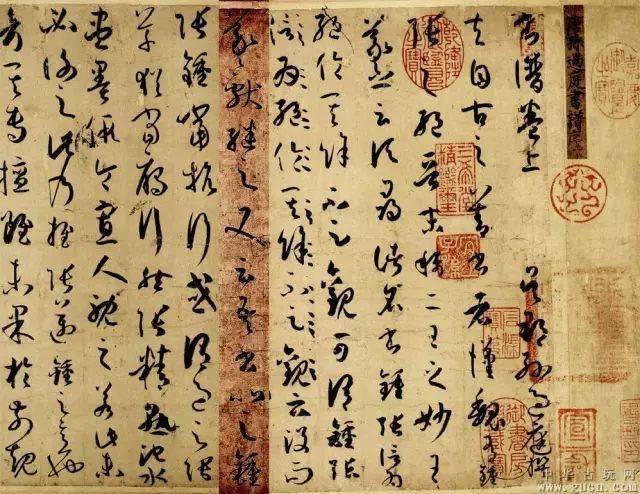 唐孫過庭書譜
書譜卷上 吳郡孫過庭撰
夫自古之善書者漢魏有鍾
張之絕晉末稱二王之妙王
羲之云頃尋諸名書鍾張信為
絕倫其餘不足觀可謂鍾張
信為絕倫其餘不足觀云沒而
羲獻繼之又云吾書比之鍾
張鍾當抗行或謂過之張
草猶當鴈行然張精熟池水
盡墨假令寡人耽之若此未
必謝之此乃推張邁鍾之意
考其專擅雖未果於前規
中华古玩网
www.gucn.com